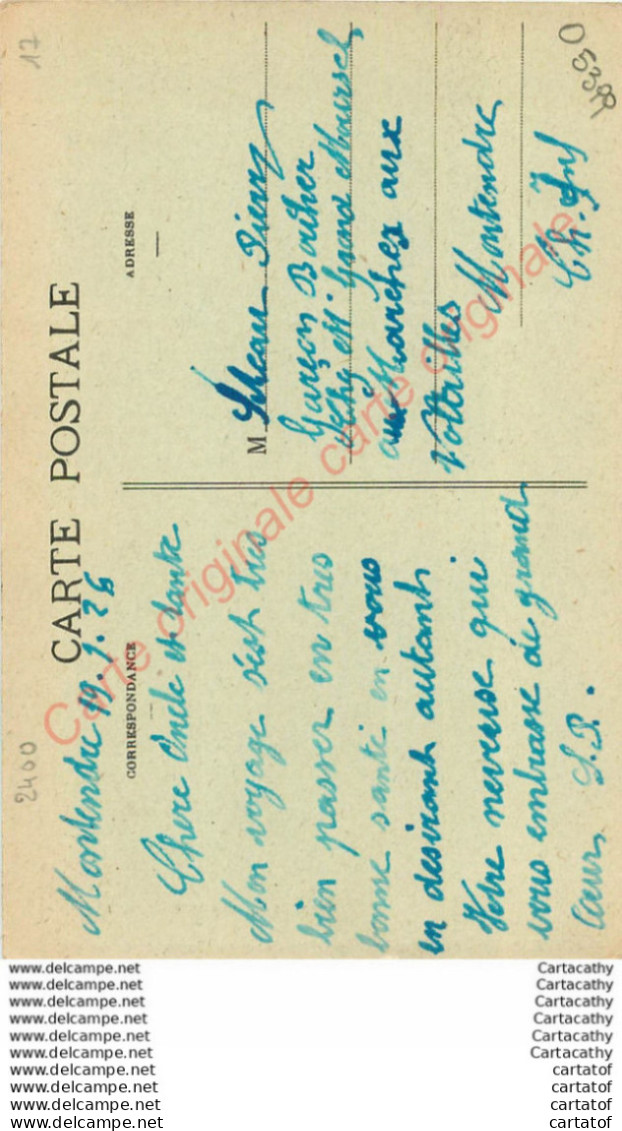 17
2400
CARTE POSTALE
CORRESPONDANCE
ADRESSE
Montendre 19.7.26
Chere Oncle et tante
Mon voyage s'est tres
bien passer en tres
bonne santé en vous
en desirant autant
Votre neveuse qui
vous embrasse de grand
Cœur S.P.
M Pierre
Garçon Boucher
Chez M. Grand
au Marchez aux
Volailles Montendre
Ch. Inf
Carte originale carte originale
www.delcampe.net Cartacathy
www.delcampe.net Cartacathy
www.delcampe.net Cartacathy
www.delcampe.net Cartacathy
www.delcampe.net Cartacathy
www.delcampe.net Cartacathy
www.delcampe.net cartatof
www.delcampe.net cartatof
www.delcampe.net cartatof
www.delcampe.net cartatof